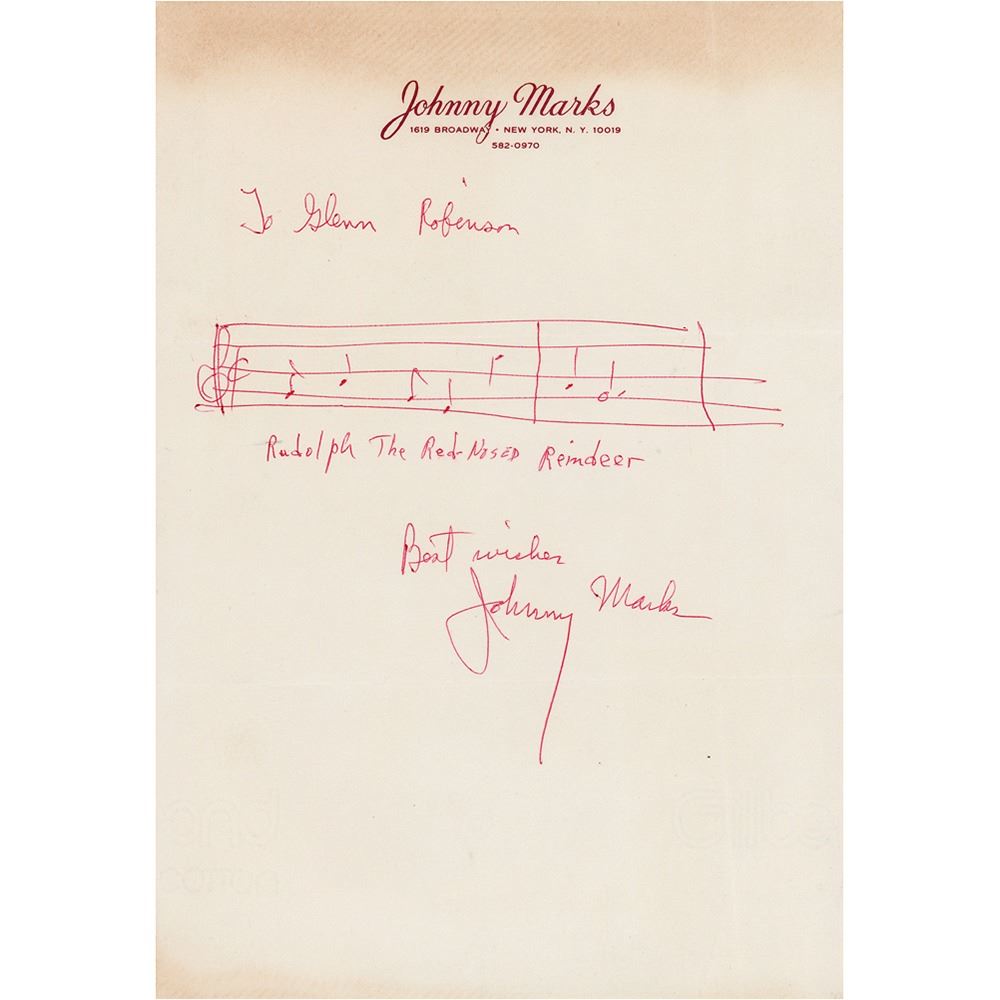 Johnny Marks
1619 BROADWAY • NEW YORK, N. Y. 10019
582-0970
To Glenn Robinson
Rudolph The Red-Nosed Reindeer
Best wishes
Johnny Marks